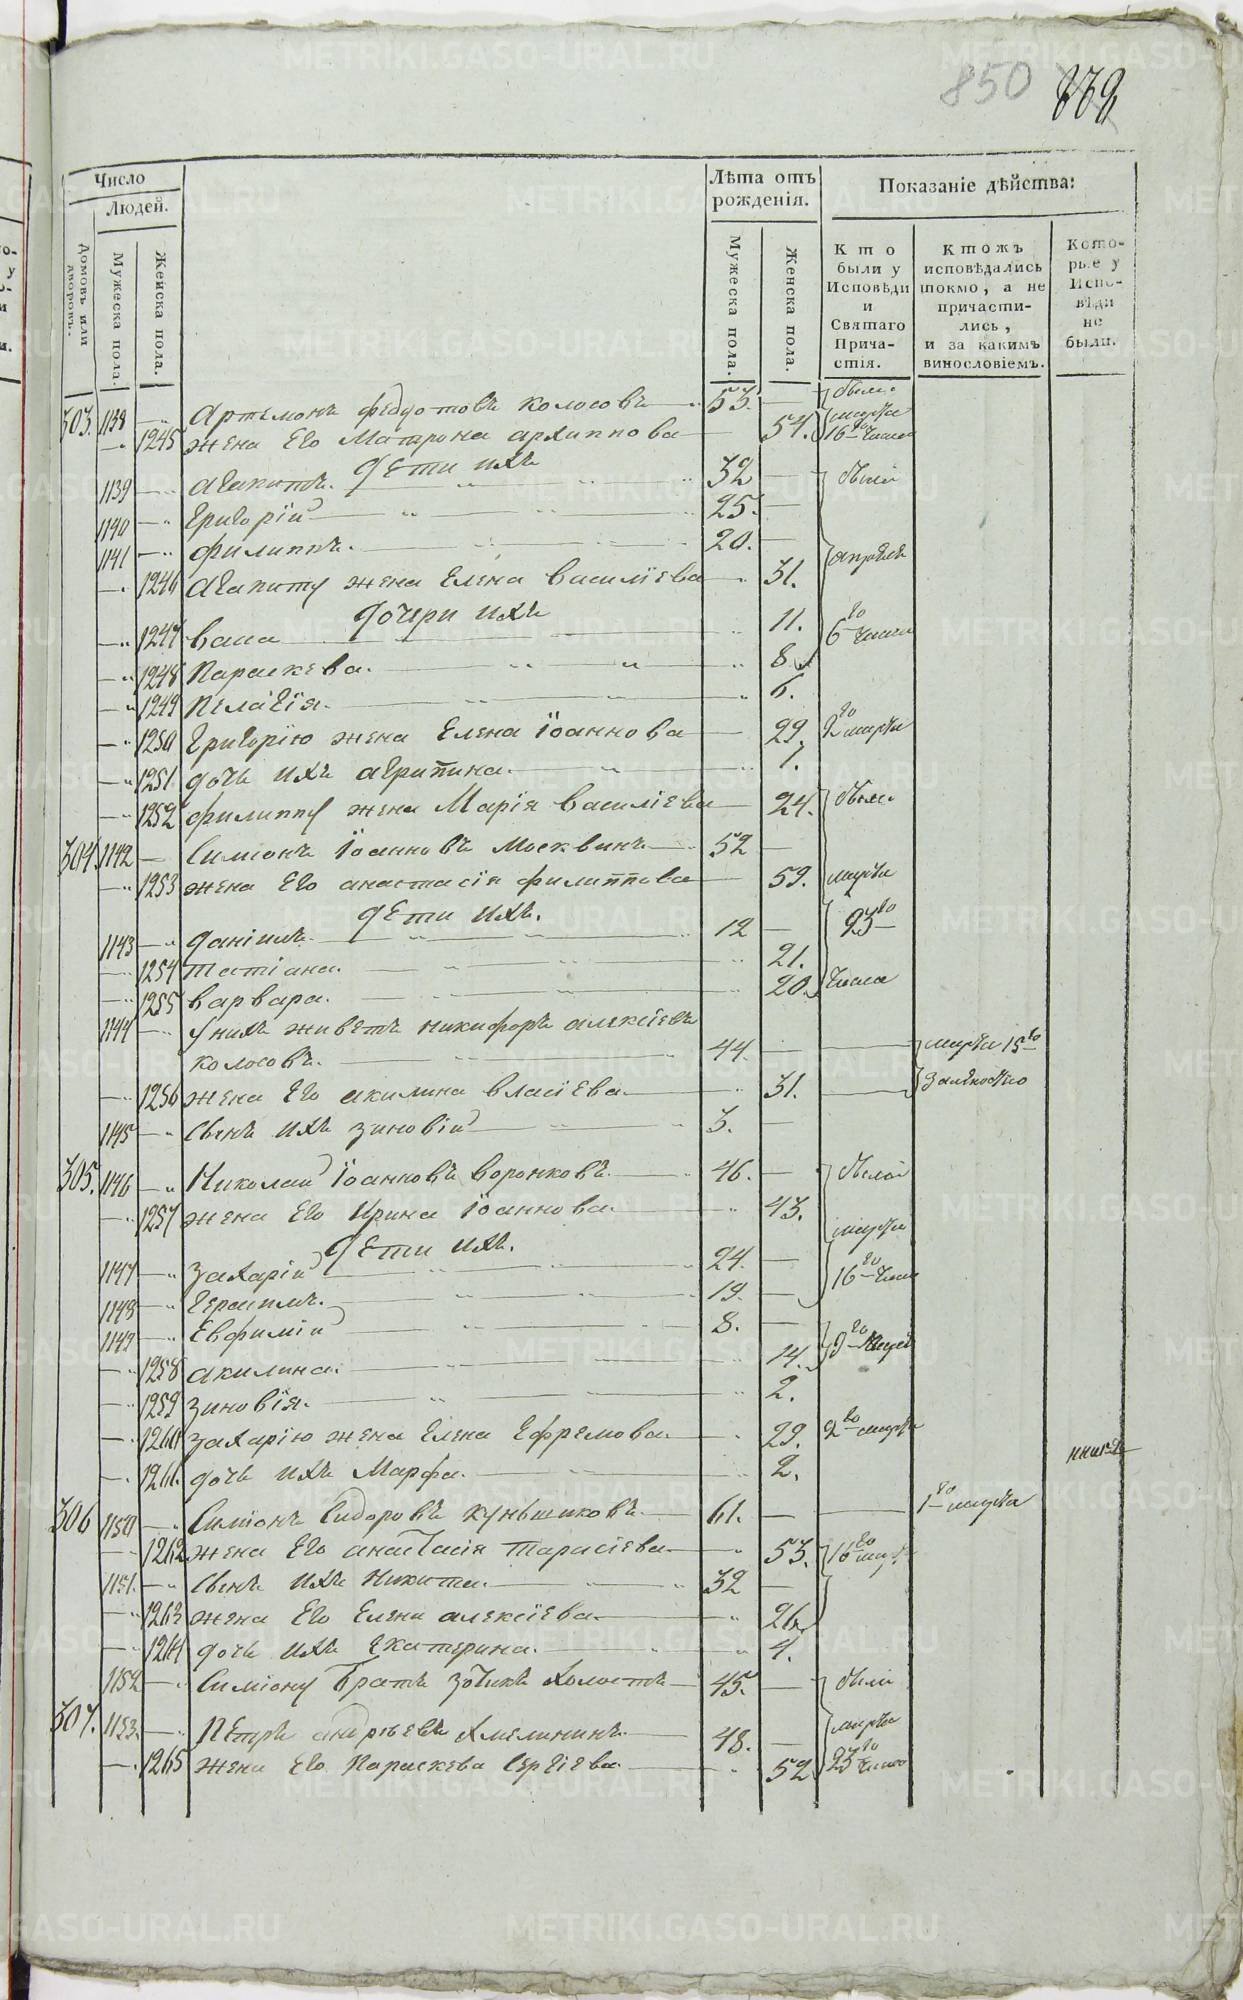 850 339
Число
Людей.
Домовъ или дворовъ.
Мужеска пола.
Женска пола.
Лѣта отъ рожденія.
Мужеска пола.
Женска пола.
Показаніе дѣйства:
Кто были у Исповѣди и Святаго Причастія.
Ктожъ исповѣдались токмо, а не причастились, и за какимъ винословіемъ.
Которые у Исповѣди не были.
303. 1138 Артемонъ Федотовъ Колосовъ 53. были
1245 жена его Матрона Архиппова 54. марта 16го числа
дети ихъ
1139 Агапитъ. 32 были
1140 Григорій 25.
1141 Филиппъ. 20.
1246 Агапиту жена Елена Василіева 31. апреля
дочери ихъ
1247 Васа 11. 6го числа
1248 Параскева. 8.
1249 Пелагія. 6.
1250 Григорію жена Елена Іоаннова 29. 2го марта
1251. дочь ихъ Агрипина. 1.
1252 Филиппу жена Марія Василіева 24. были
304. 1142 Симіонъ Іоанновъ Москвинъ 52
1253 жена его Анастасія Филиппова 59. марта
дети ихъ. 23го
1143 Даніилъ 12
1254 Татіана. 21.
1255 Варвара. 20. числа
1144 У нихъ живетъ Никифоръ Алексіевъ
Колосовъ. 44. марта 15го
1256 жена его Акилина Власіева 31.
1145 Сынъ ихъ Зиновій 3.
305. 1146 Николай Іоанновъ Воронковъ 46. были
1257 жена его Ирина Іоаннова. 43. марта
дети ихъ.
1147 Захарій 24. 16го числ
1148 Герасимъ. 19.
1149 Евфимій 8.
1258 Акилина. 14. 9го
1259 Зиновія. 2.
1260 Захарію жена Елена Ефремова. 29. 2го марта
1261. дочь ихъ Марфа. 2.
306 1150 Симіонъ Сидоровъ 61. 1го марта
1262 жена его Анастасія Тарасіева 53. 16го мар
1151. Сынъ ихъ Никита. 32
1263 жена его Елена Алексіева 26.
1264 дочь ихъ Екатерина. 4.
1152 Симіону братъ Зотикъ холостъ 45. были
307. 1153. Петръ Андреевъ Хмелининъ 48. марта
1265 жена его Параскева Сергіева 52 23го число
METRIKI.GASO-URAL.RU